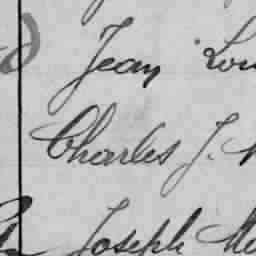 Jean Lou
Charles J.
Joseph Mo